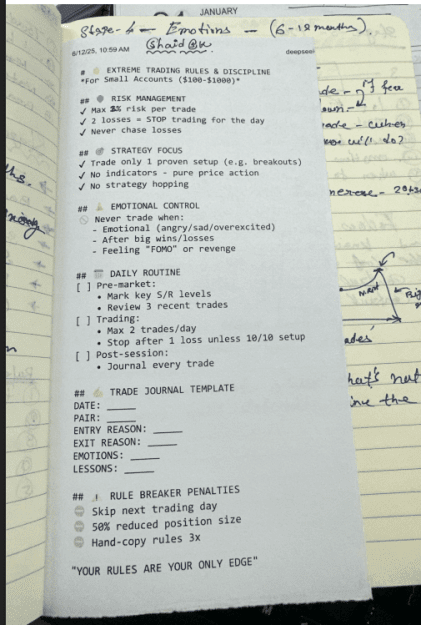 JANUARY
Stage-4 — Emotions — (6-12 months).
6/12/25, 10:59 AM
deepsee
# EXTREME TRADING RULES & DISCIPLINE
*For Small Accounts ($100-$1000)*
## RISK MANAGEMENT
✓ Max 2% risk per trade
✓ 2 losses = STOP trading for the day
✓ Never chase losses
## STRATEGY FOCUS
✓ Trade only 1 proven setup (e.g. breakouts)
✓ No indicators - pure price action
✓ No strategy hopping
## EMOTIONAL CONTROL
Never trade when:
- Emotional (angry/sad/overexcited)
- After big wins/losses
- Feeling "FOMO" or revenge
## DAILY ROUTINE
[ ] Pre-market:
• Mark key S/R levels
• Review 3 recent trades
[ ] Trading:
• Max 2 trades/day
• Stop after 1 loss unless 10/10 setup
[ ] Post-session:
• Journal every trade
## TRADE JOURNAL TEMPLATE
DATE: _____
PAIR: _____
ENTRY REASON: _____
EXIT REASON: _____
EMOTIONS: _____
LESSONS: _____
## RULE BREAKER PENALTIES
Skip next trading day
50% reduced position size
Hand-copy rules 3x
"YOUR RULES ARE YOUR ONLY EDGE"